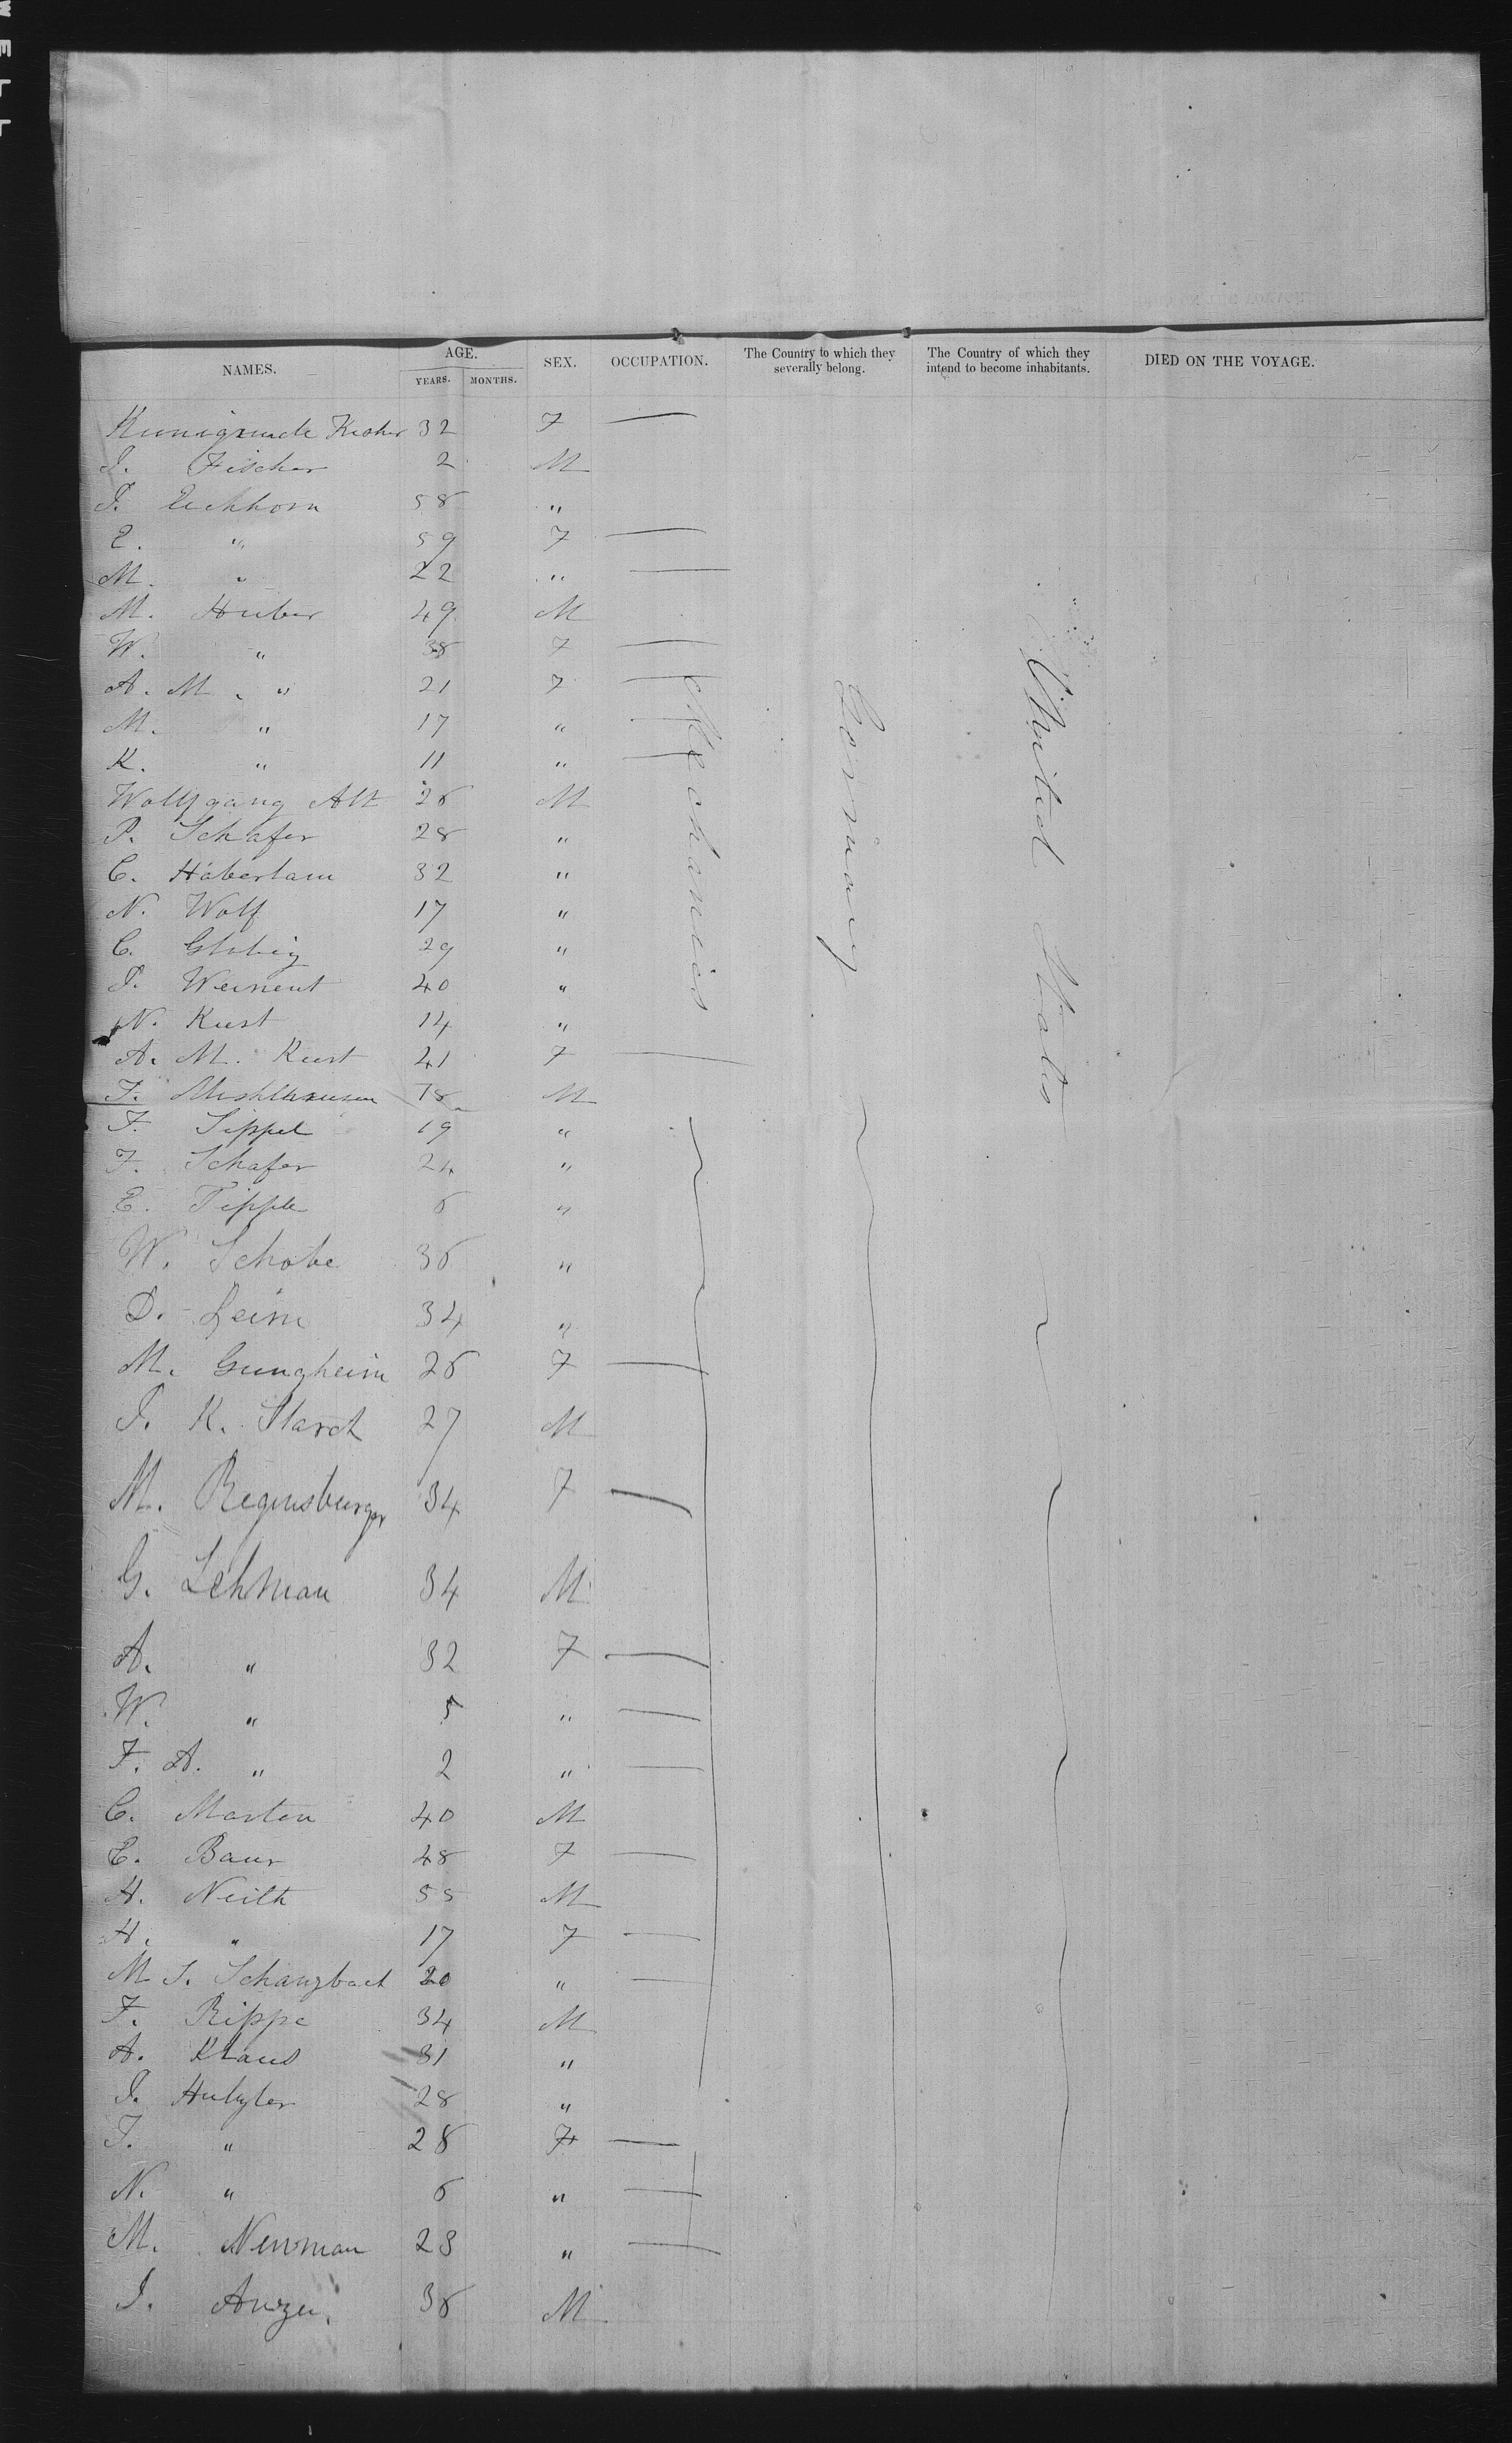 NAMES. AGE. SEX. OCCUPATION. The Country to which they severally belong. The Country of which they intend to become inhabitants. DIED ON THE VOYAGE.
YEARS. MONTHS.
Kunigunde 32 F —
J. Fischer 2 M
J. Eichhorn 58 "
E. " 59 F —
M. " 22 " —
M. Huber 49 M
W. " 38 F —
A. M. " 21 F —
M. " 17 " —
K. " 11 " —
Mechanics
Germany
United States
Wolfgang Alt 26 M
P. Schafer 28 "
C. Haberlam 32 "
N. Wolf 17 "
C. 29 "
J. Weinent 40 "
N. Kust 14 "
A. M. Kust 41 F —
J. 18 M
F. Sippel 19 "
F. Schafer 24 "
E. Tipple 6 "
W. Schobe 36 "
D. Leim 34 "
M. Gungheim 26 F —
J. K. Starck 27 M
M. Regensburger 34 F —
G. Lehman 34 M
A. " 32 F —
W. " 5 " —
F. A. " 2 " —
C. Marten 40 M
E. Baur 48 F —
H. Neith 55 M
H. " 17 F —
M. S. 20 " —
F. Rippe 34 M
A. Klaus 31 "
J. 28 "
T. " 28 F —
N. " 6 " —
M. Newman 23 " —
J. 36 M